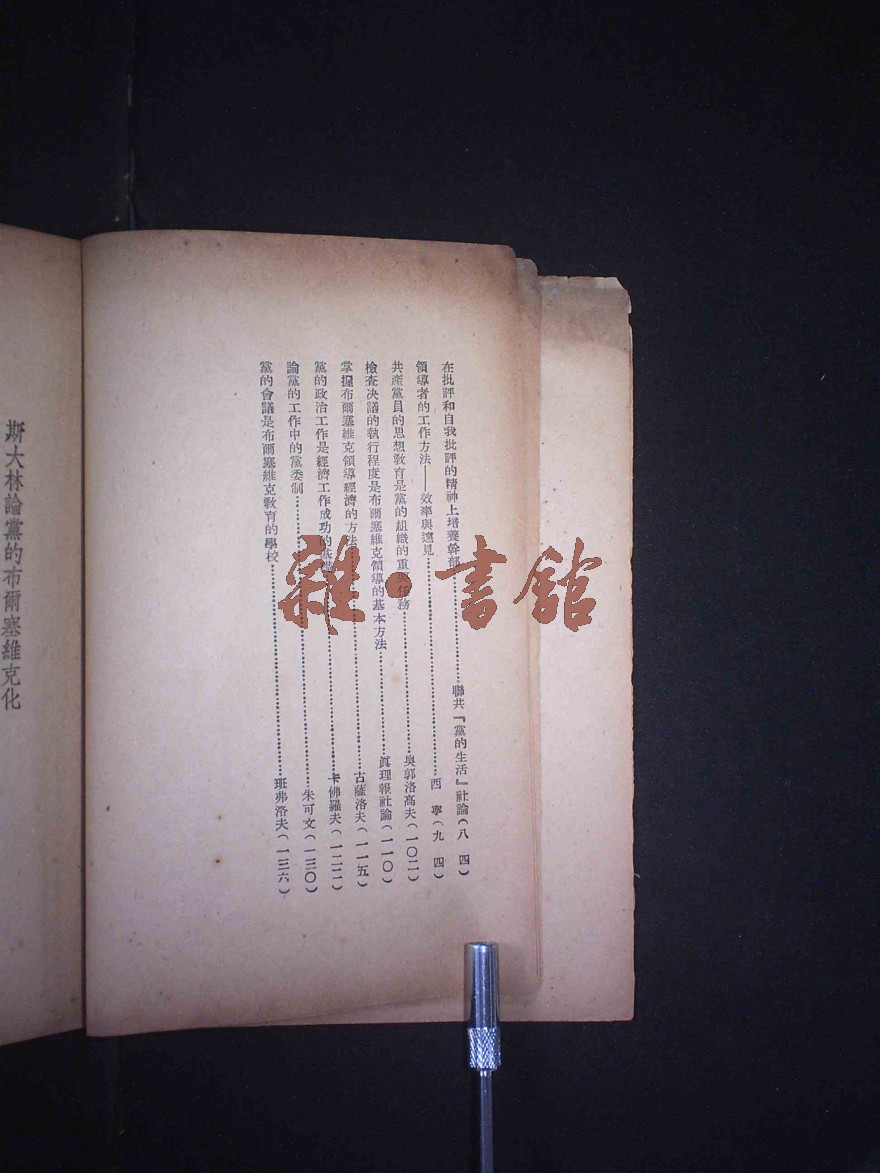 在批評和自我批評的精神上培養幹部…………聯共『黨的生活』社論(八 四)
領導者的工作方法——效率與遠見…………西 寧(九 四)
共產黨員的思想敎育是黨的組織的重要任務…………奧郭洛高夫(一〇二)
檢查决議的執行程度是布爾塞維克領導的基本方法…………眞理報社論(一一〇)
掌握布爾塞維克領導經濟的方法…………古薩洛夫(一一五)
黨的政治工作是經濟工作成功的基礎…………卡佛羅夫(一二二)
論黨的工作中的黨委制…………朱可文(一三〇)
黨的會議是布爾塞維克敎育的學校…………班弗洛夫(一三六)
斯大林論黨的布爾塞維克化
雜·書館